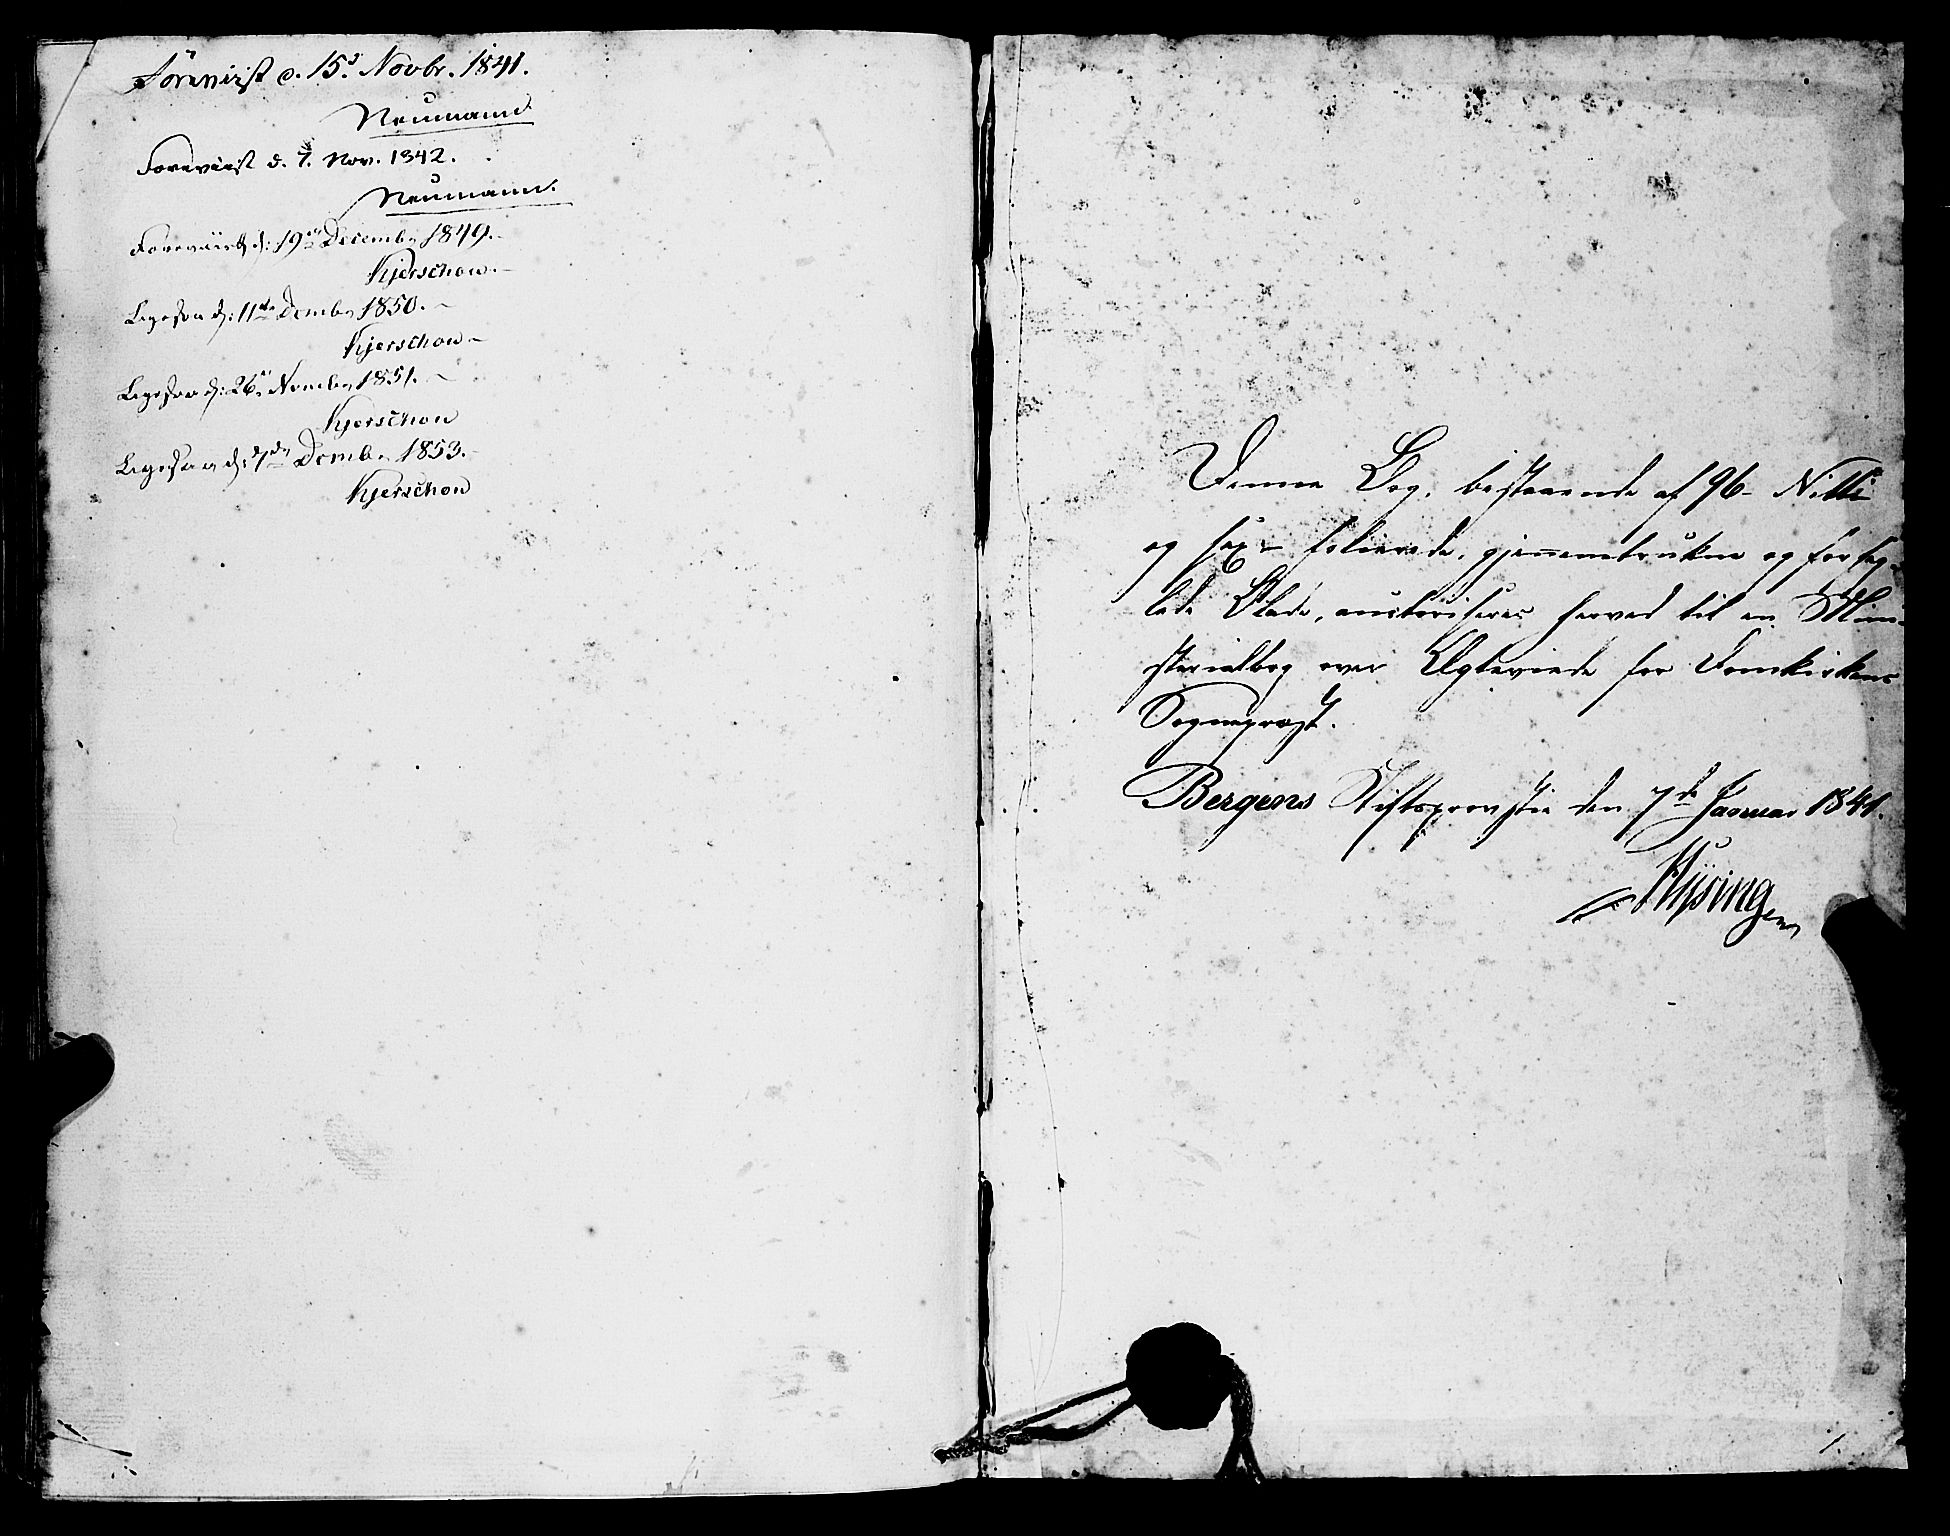 Foreviist d. 15d Novbr. 1841.
Neumann.
Foreviist d. 7. Nov. 1842.
Neumann.
Foreviist d: 19de Decembr 1849.
Kjerschow.
Ligesaa d: 11te Decembr 1850.
Kjerschow
Ligesaa d: 26de Novembr 1851.
Kjerschow
Ligesaa d: 7de Decembr 1853.
Kjerschow
Denne Bog, bestaaende af 96 - Nitti
og sex - folierede, gjennemtrukne og forseg-
lede Blade, autoriseres herved til en Mini-
sterialbog over Ægteviede for Domkirkens
Sognepræst.
Bergens Stiftsprovstie den 7de Januar 1841.
Hysing
1.